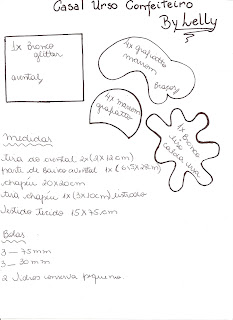 Casal Urso Confeiteiro
By Lelly
1x Branco
glitter
avental
4x grafiatto
marrom
braços
4x marrom
grafiatto
1x Branco
liso
calda urso
Medidas
tira do avental 2x (2x12cm)
parte de baixo avental 1x (6,5x28cm)
chapéu 20x20cm
tira chapéu 1x (3x30cm) listrado
vestido tecido 15x75cm
Bolas
3 - 75mm
3 - 30mm
2 vidros conserva pequeno